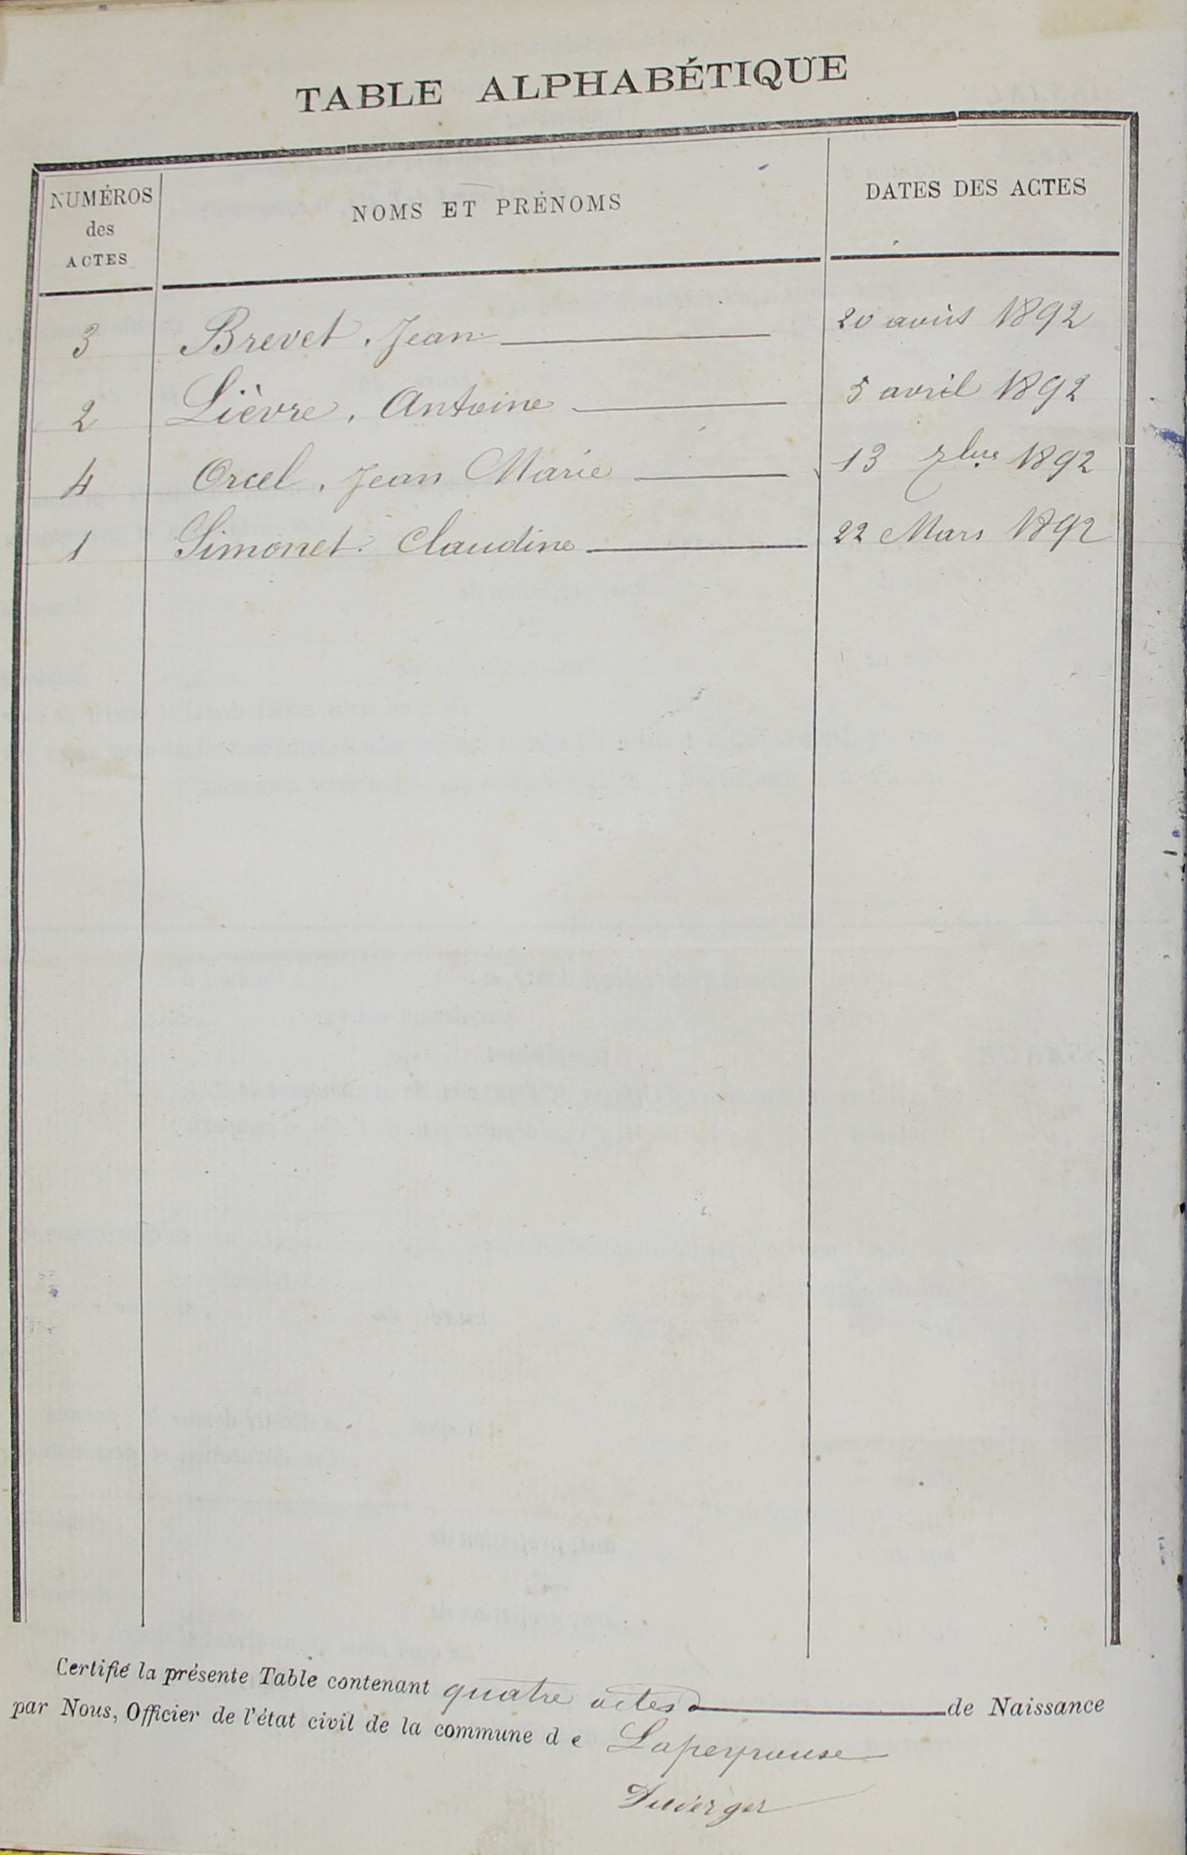 TABLE ALPHABÉTIQUE
NUMÉROS des ACTES NOMS ET PRÉNOMS DATES DES ACTES
3 Brevet, Jean 20 août 1892
2 Lièvre, Antoine 5 avril 1892
4 Orcel, Jean Marie 13 1892
1 Simonet Claudine 22 Mars 1892
Certifié la présente Table contenant quatre actes de Naissance
par Nous, Officier de l'état civil de la commune de Lapeyrouse
Duverger